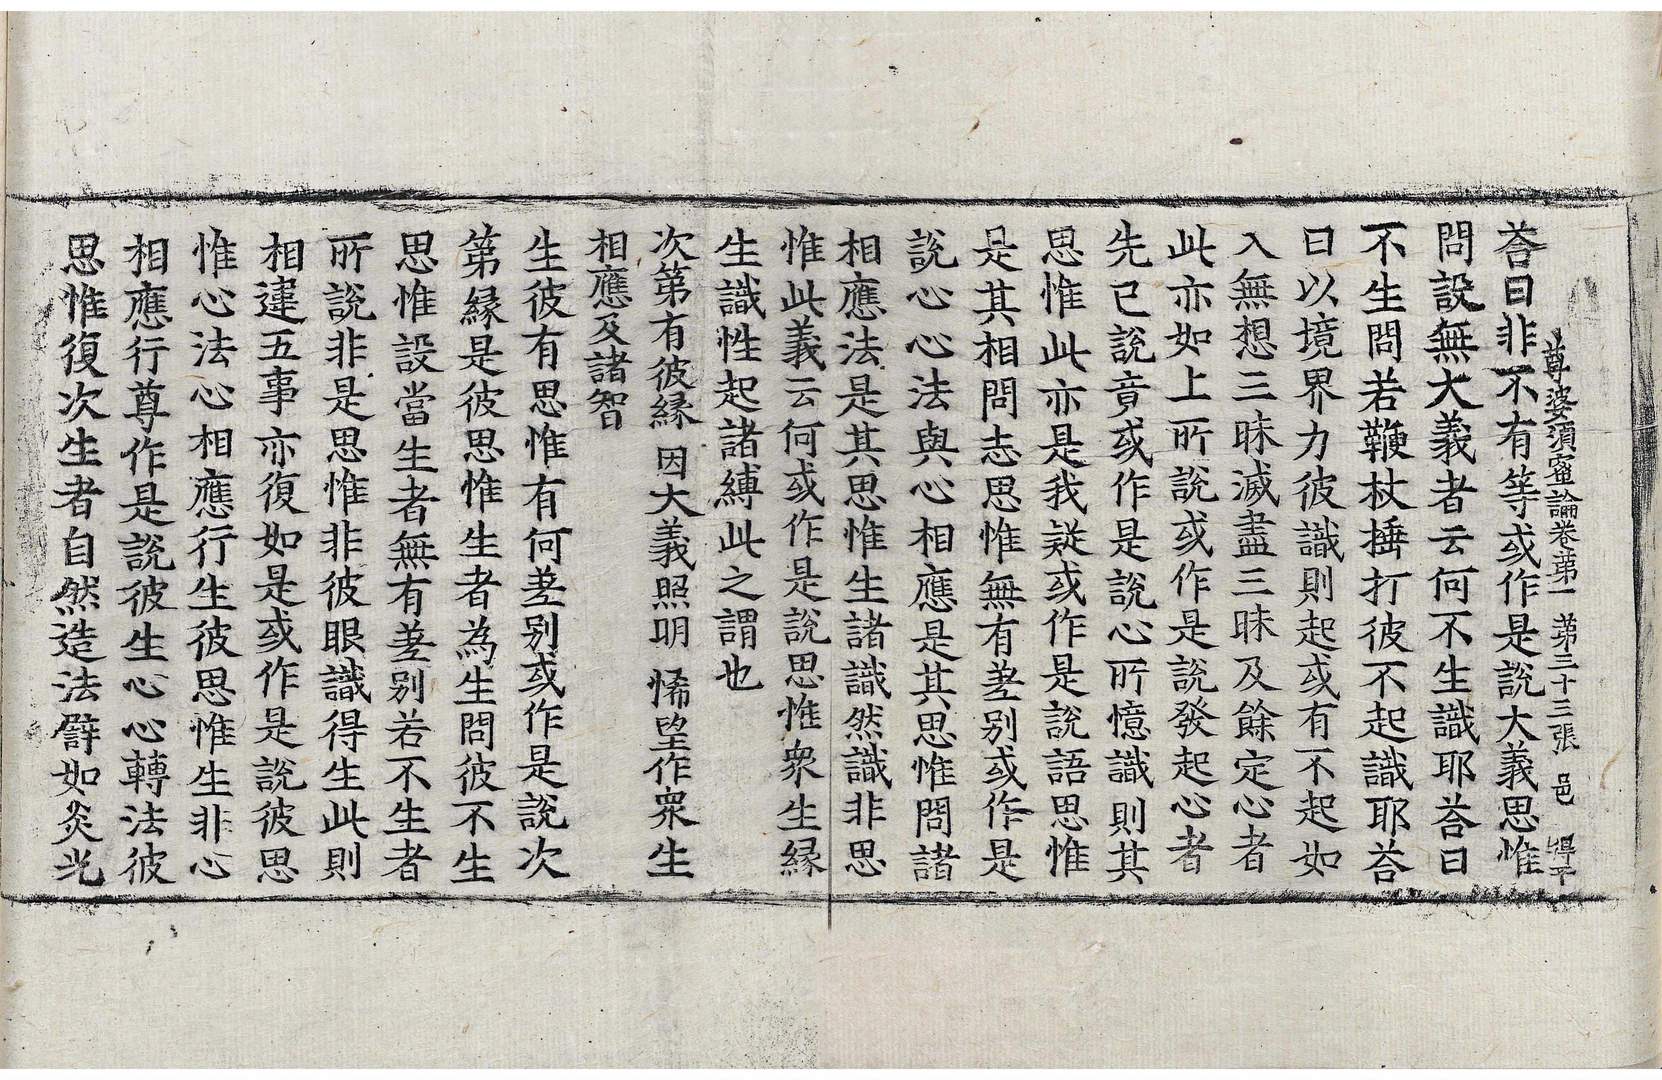 尊婆須蜜論卷第一 第三十三張 邑
荅曰非不有等或作是說大義思惟
問設無大義者云何不生識耶荅曰
不生問若鞭杖捶打彼不起識耶荅
曰以境界力彼識則起或有不起如
入無想三昧滅盡三昧及餘定心者
此亦如上所說或作是說發起心者
先已說竟或作是說心所憶識則其
思惟此亦是我疑或作是說語思惟
是其相問志思惟無有差別或作是
說心心法與心相應是其思惟問諸
相應法是其思惟生諸識然識非思
惟此義云何或作是說思惟衆生緣
生識性起諸縛此之謂也
次第有彼緣 因大義照明 悕望作衆生
相應及諸智
生彼有思惟有何差別或作是說次
第緣是彼思惟生者為生問彼不生
思惟設當生者無有差別若不生者
所說非是思惟非彼眼識得生此則
相違五事亦復如是或作是說彼思
惟心法心相應行生彼思惟生非心
相應行尊作是說彼生心心轉法彼
思惟復次生者自然造法譬如炎光